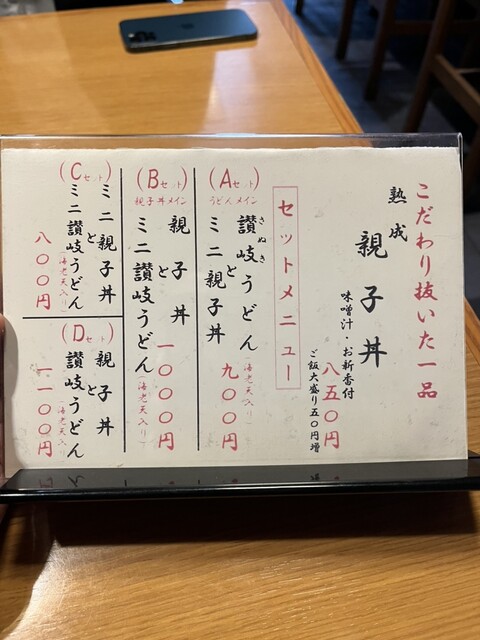 こだわり抜いた一品
熟成
親子丼
味噌汁・お新香付
八五〇円
ご飯大盛り五〇円増
セットメニュー
(Aセット)
うどんメイン
さぬき
讃岐うどん(海老天入り)
と
ミニ親子丼
九〇〇円
(Bセット)
親子丼メイン
親子丼
と
ミニ讃岐うどん(海老天入り)
一〇〇〇円
(Cセット)
ミニ親子丼
と
ミニ讃岐うどん
(海老天入り)
八〇〇円
(Dセット)
親子丼
と
讃岐うどん
(海老天入り)
一一〇〇円